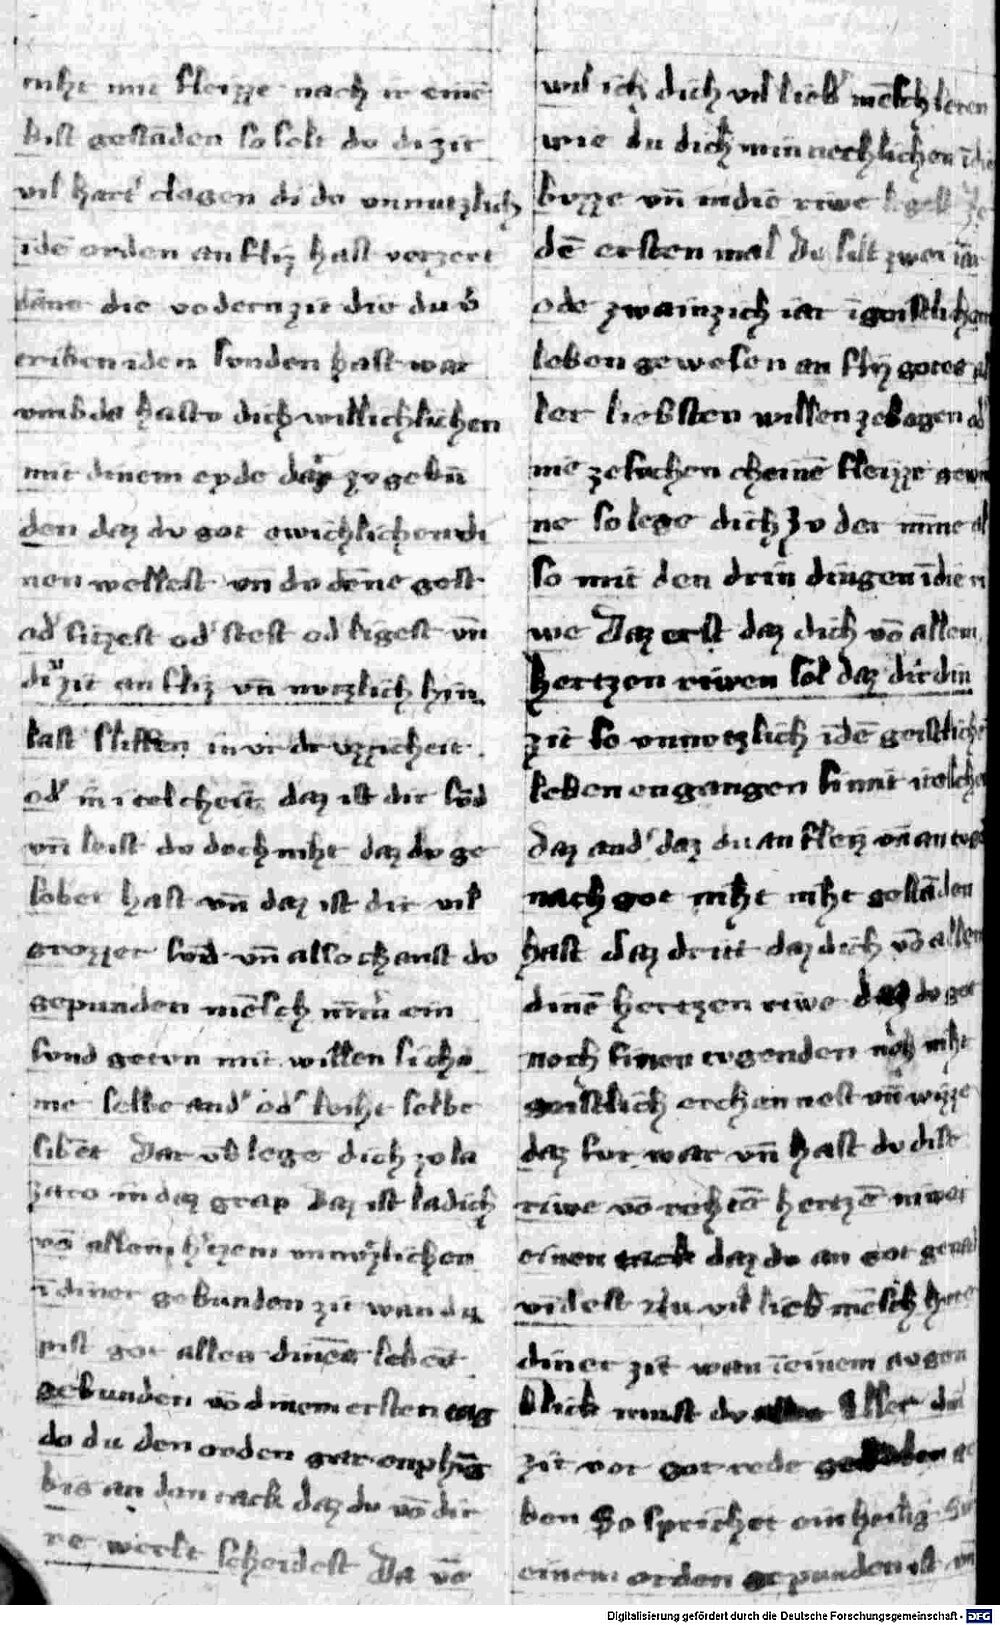 niht mit fleizze nach ir eine
bist gestāden so solt du di zit
vil hart clagen di du vnnutzlich
ī dē orden an fliz hast verzert
dāne die vodern zit die du v̄
triben i den sunden hast war
vmb da hastu dich willichlichen
mit dinem eyde dar zv gebū
den daz dv got ewichlichen di
nen wellest vn̄ dv dēne gest
od' sitzest od' stest od' ligest vn̄
di zit an fliz vn̄ nvtzlich hin
last sliffen in vrdruzzicheit
od' in itelcheit daz ist dir sv̄d
vn̄ leist du doch niht daz dv ge
lobet hast vn̄ daz ist dir vil
grozzer sv̄d vn̄ also chanst dv
gepunden mēsch nim̄ ein
sund getvn mit willen sich
me selbe and' od' leiht selbe
sibēt Dar vb lege dich zv la
zaro in daz grap Daz ist la dich
vō allem h'tzem vnnvtzlichen
ī diner gebunden zit wan du
pist got alles dines lebēt
gebunden vō dinem ersten tag
do du den orden gar enphīg
bis an den tack daz dv vō dir
re werlt scheidest Da vō
wil ich dich vil lieb' mēsch leren
wie du dich minnechlichen ī die
bvzze vn̄ in die riwe legest Ze
dē ersten mal Du silt zwei iar
ode zwainzich iar ī geistlichem
leben gewesen an fliz gotes al
ler liebsten willen ze
nie ze suchen cheinē fleizze gewn
ne so lege dich zv der minne al
so mit den drin dingen ī die ri
we Daz erst daz dich vō allem
hertzen riwen sol daz dir din
zit so vnnvtzlich ī dē geistlichē
leben engangen si mit itelcheit
Daz and' daz du an fleiz vn̄ an
nach got niht niht gestāden
hast daz dritt daz dich vō allen
dinē hertzen riwe daz dv got
noch sinen tvgenden noh niht
geistlich erchennest vn̄ wizze
daz fur war vn̄ hast dv dise
riwe vō rehtē hertzē niwer
einen tack daz dv an got
vīdest Nu vil lieb mēsch hvte
diner zit wan ī einem avgen
blick mvst dv aller din
zit vor got rede ge
ben So sprichet ein heilig
einem orden gepunden ist vn̄
Digitalisierung gefördert durch die Deutsche Forschungsgemeinschaft - DFG